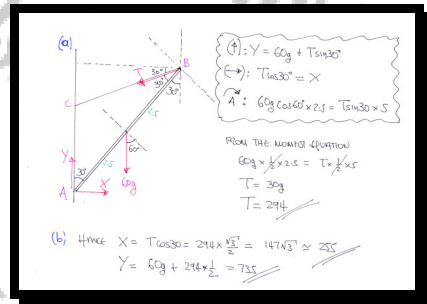 (a)
B
30°
T
30°
30°
C
2.5
Y
60°
30°
2.5
X
60g
A
(↑): Y = 60g + Tsin30°
(→): Tcos30° = X
A: 60g cos60° × 2.5 = Tsin30 × 5
FROM THE MOMENT EQUATION
60g × 1/2 × 2.5 = T × 1/2 × 5
T = 30g
T = 294
(b) HENCE X = Tcos30 = 294 × √3/2 = 147√3 ≃ 255
Y = 60g + 294 × 1/2 = 735